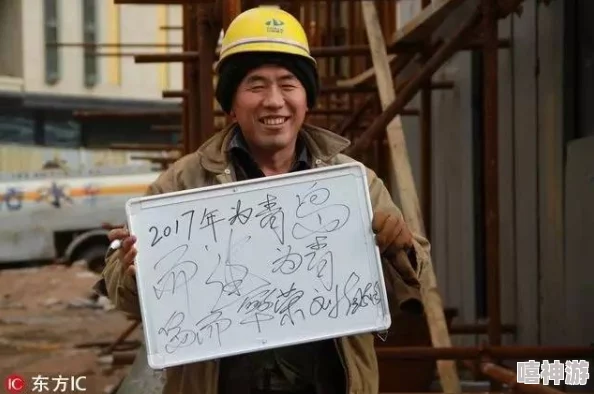 2017年为青岛
而 为青
岛而繁荣 刘
东方IC
嘻神游